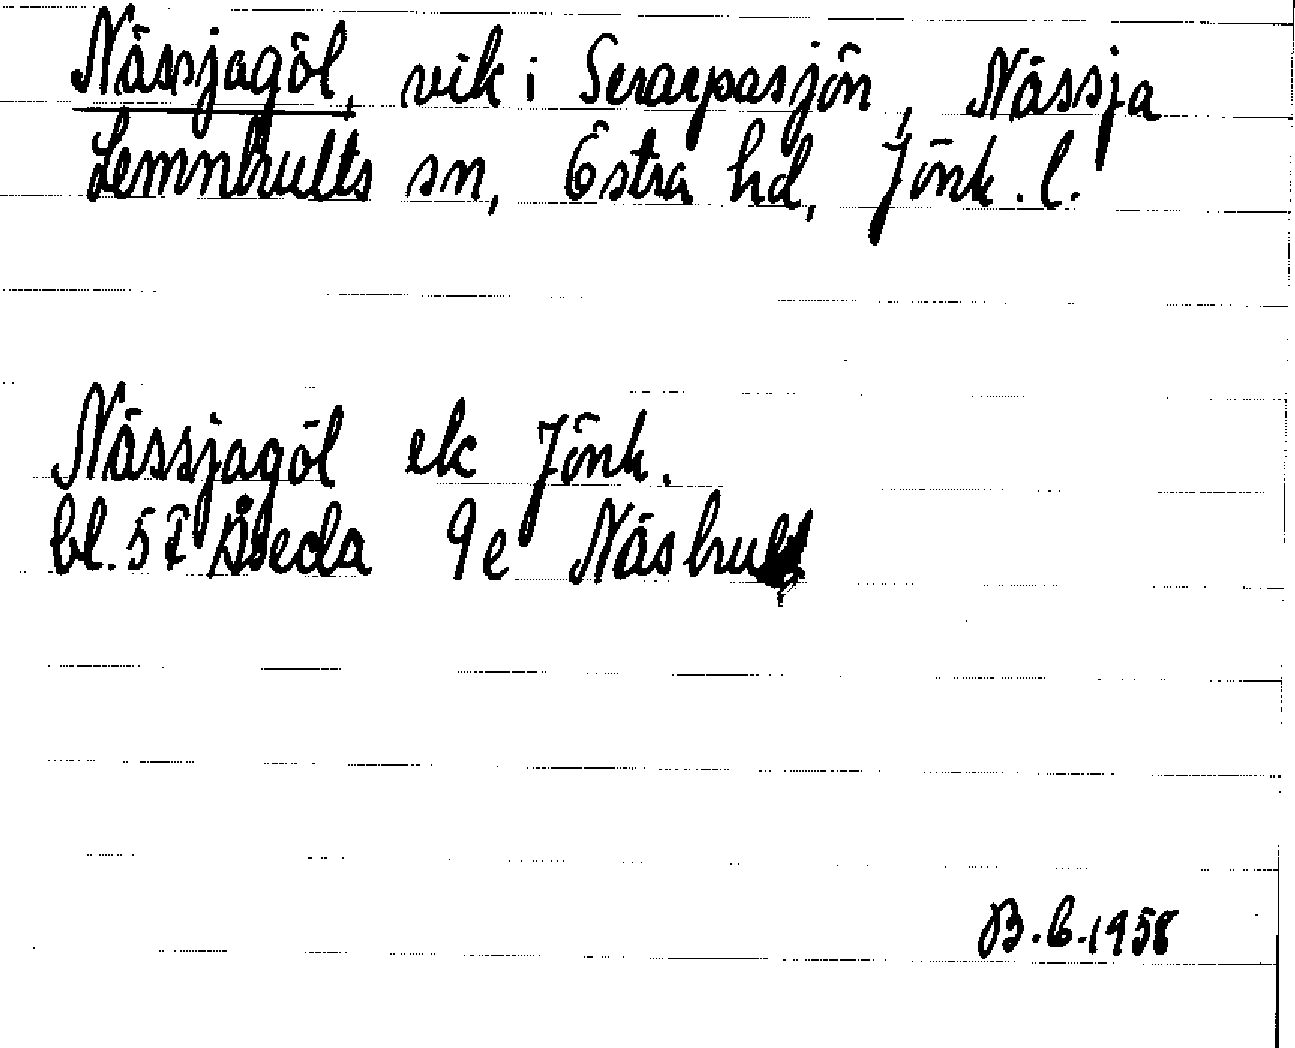 Nässjagöl, vik i Serarpasjön, Nässja
Lemnhults sn, Östra hd, Jönk. l.
Nässjagöl ek Jönk.
bl. 57 Åseda 9e Näshult
B.C.1958